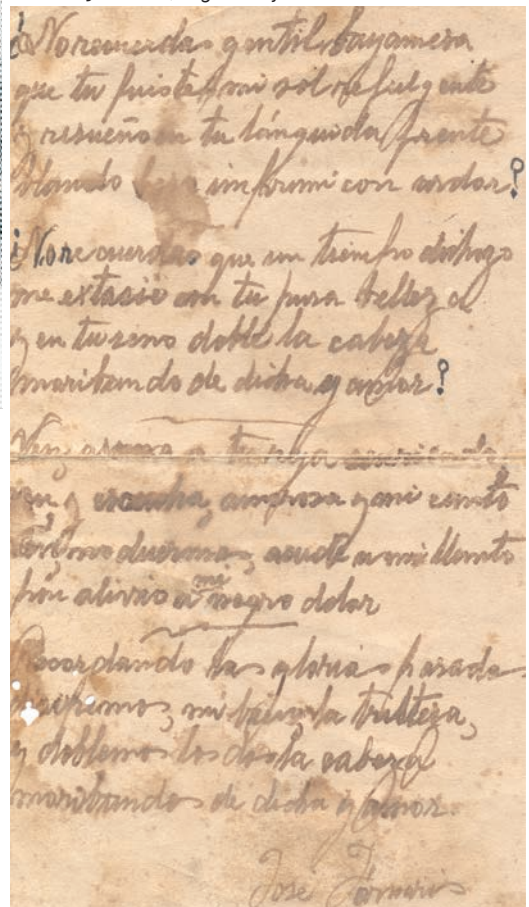 ¿No recuerdas gentil bayamesa
que tu fuistes mi sol refulgente
y risueño en tu lánguida frente
blando beso imprimi con ardor?
¿No recuerdas que un tiempo dichozo
me extacié con tu pura belleza
y en tu seno doblé la cabeza
moribundo de dicha y amor?
Ven, asoma a tu reja sonriendo
ven y escucha, amorosa y mi canto
Ven, no duermas, acude a mi llanto
pon alivio a mi negro dolor
Recordando las glorias pasadas
disipemos, mi bien, la tristeza,
y doblemos los dos la cabeza
moribundos de dicha y amor.
José Fornaris